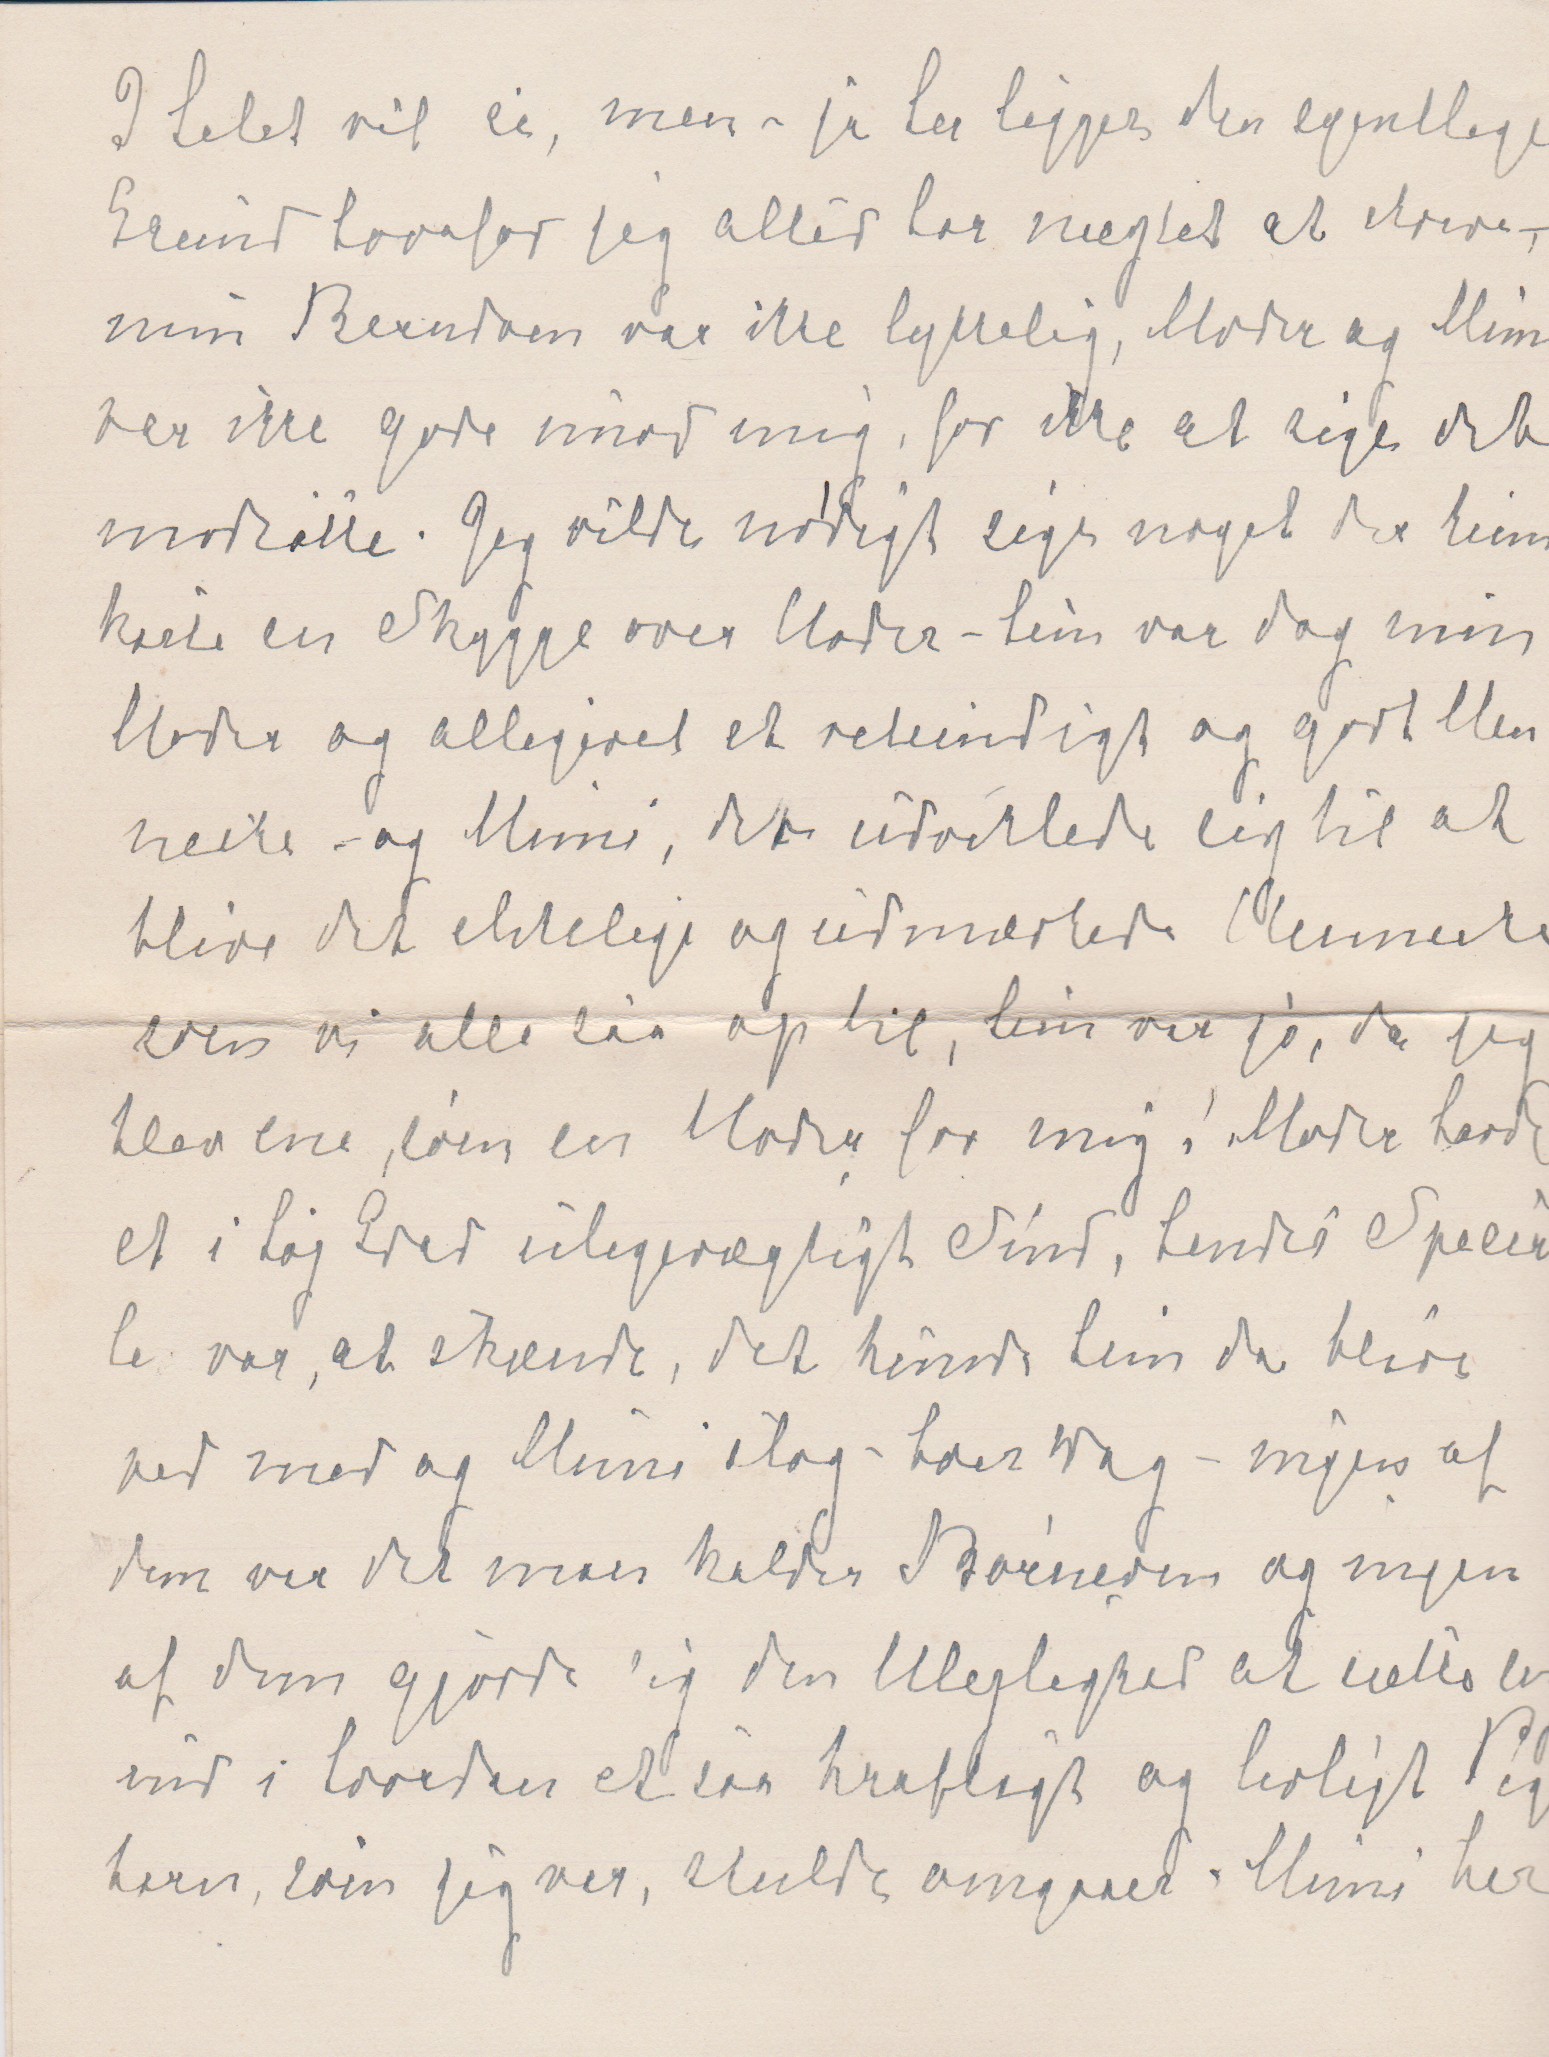 I helet vil se, men - ja her ligger den egentlige
Grund hvorfor jeg altid har nægtet at skrive -
min Barndom var ikke lykkelig, Moder og Mimi
var ikke gode imod mig, for ikke at sige det
modsatte. Jeg vilde nødigt sige noget der kunde
kaste en Skygge over Moder - hun var dog min
Moder og alligevel et retsindigt og godt Men
neske - og Mimi, der udviklede sig til at
blive det elskelige og udmærkede Menneske
som vi alle saa op til, hun var jo, da jeg
blev ene, som en Moder for mig! Moder havde
et i høj Grad uligevægtigt Sind, hendes Specia
le var, at skænde, det kunde hun da blive
ved med og Mimi slog - hver Dag - ingen af
dem var det man kalder Børneven og ingen
af dem gjorde sig den Ulejlighed at sætte sig
ind i hvordan et saa kraftigt og livligt Pige
barn, som jeg var, skulde omgaaes. Mimi har